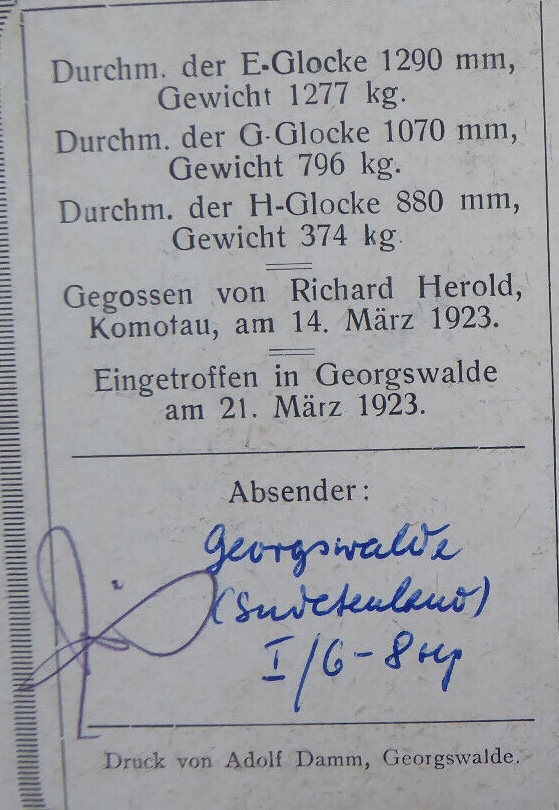 Durchm. der E-Glocke 1290 mm,
Gewicht 1277 kg.
Durchm. der G-Glocke 1070 mm,
Gewicht 796 kg.
Durchm. der H-Glocke 880 mm,
Gewicht 374 kg.
Gegossen von Richard Herold,
Komotau, am 14. März 1923.
Eingetroffen in Georgswalde
am 21. März 1923.
Absender:
Georgswalde
(Sudetenland)
I/6-8
Druck von Adolf Damm, Georgswalde.